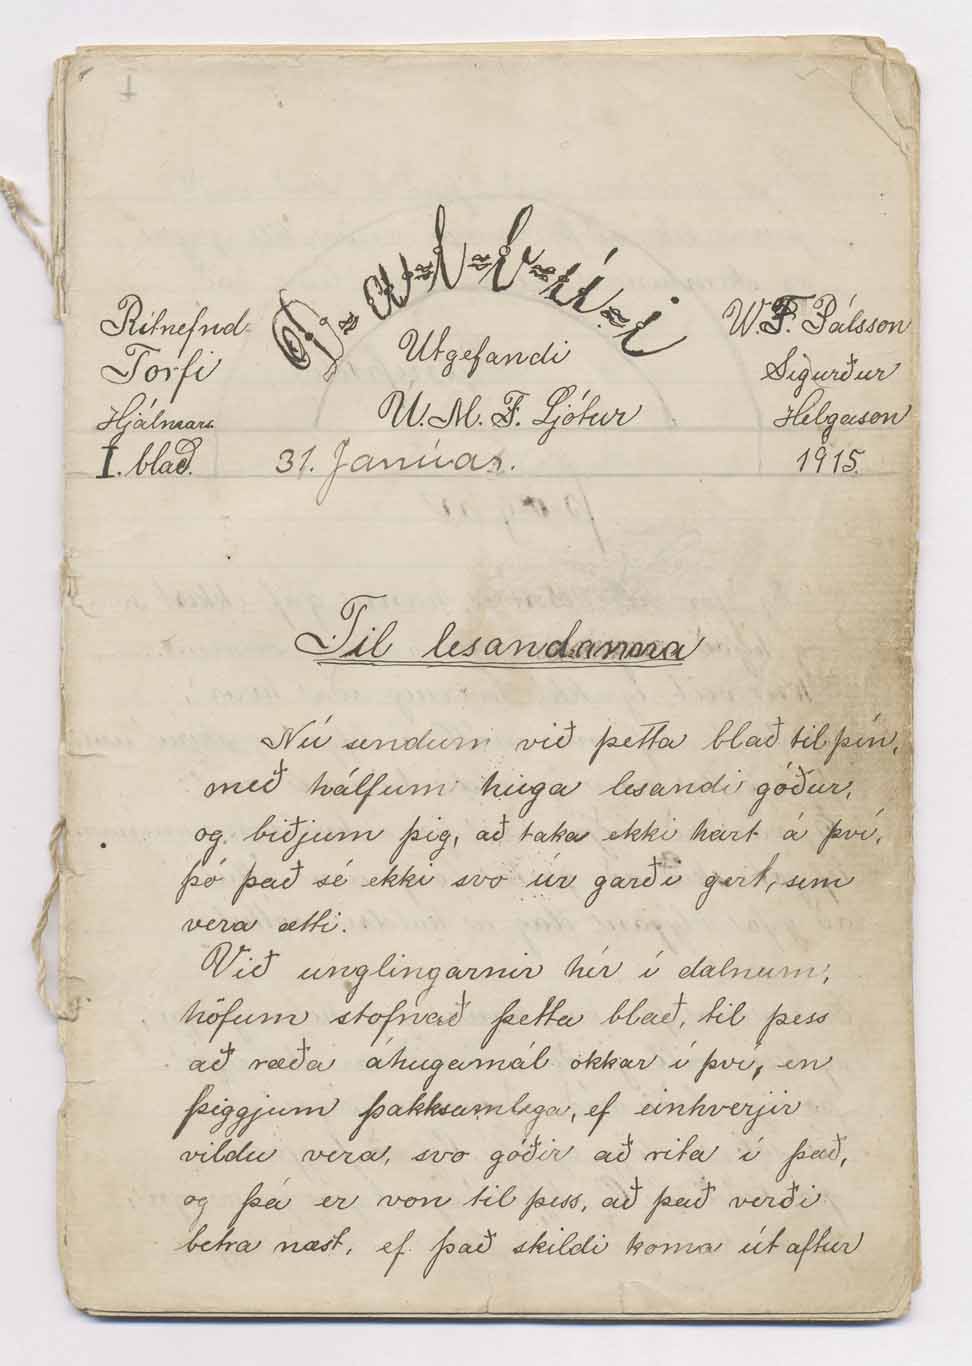 D-a-l-b-ú-i
Ritnefnd
Torfi
Hjálmars.
Utgefandi
U. M. F. Ljótur
W. F. Pálsson
Sigurður
Helgason
I. blað. 31. Janúar. 1915.
Til lesandanna
Nú sendum við þetta blað til þín,
með hálfum huga lesandi góður,
og biðjum þig, að taka ekki hart á því,
þó það sé ekki svo úr garði gert, sem
vera ætti.
Við unglingarnir hér í dalnum,
höfum stofnað þetta blað, til þess
að ræða áhugamál okkar í því, en
þiggjum þakksamlega, ef einhverjir
vildu vera, svo góðir að rita í það,
og þá er von til þess, að það verði
betra næst, ef það skildi koma út aftur